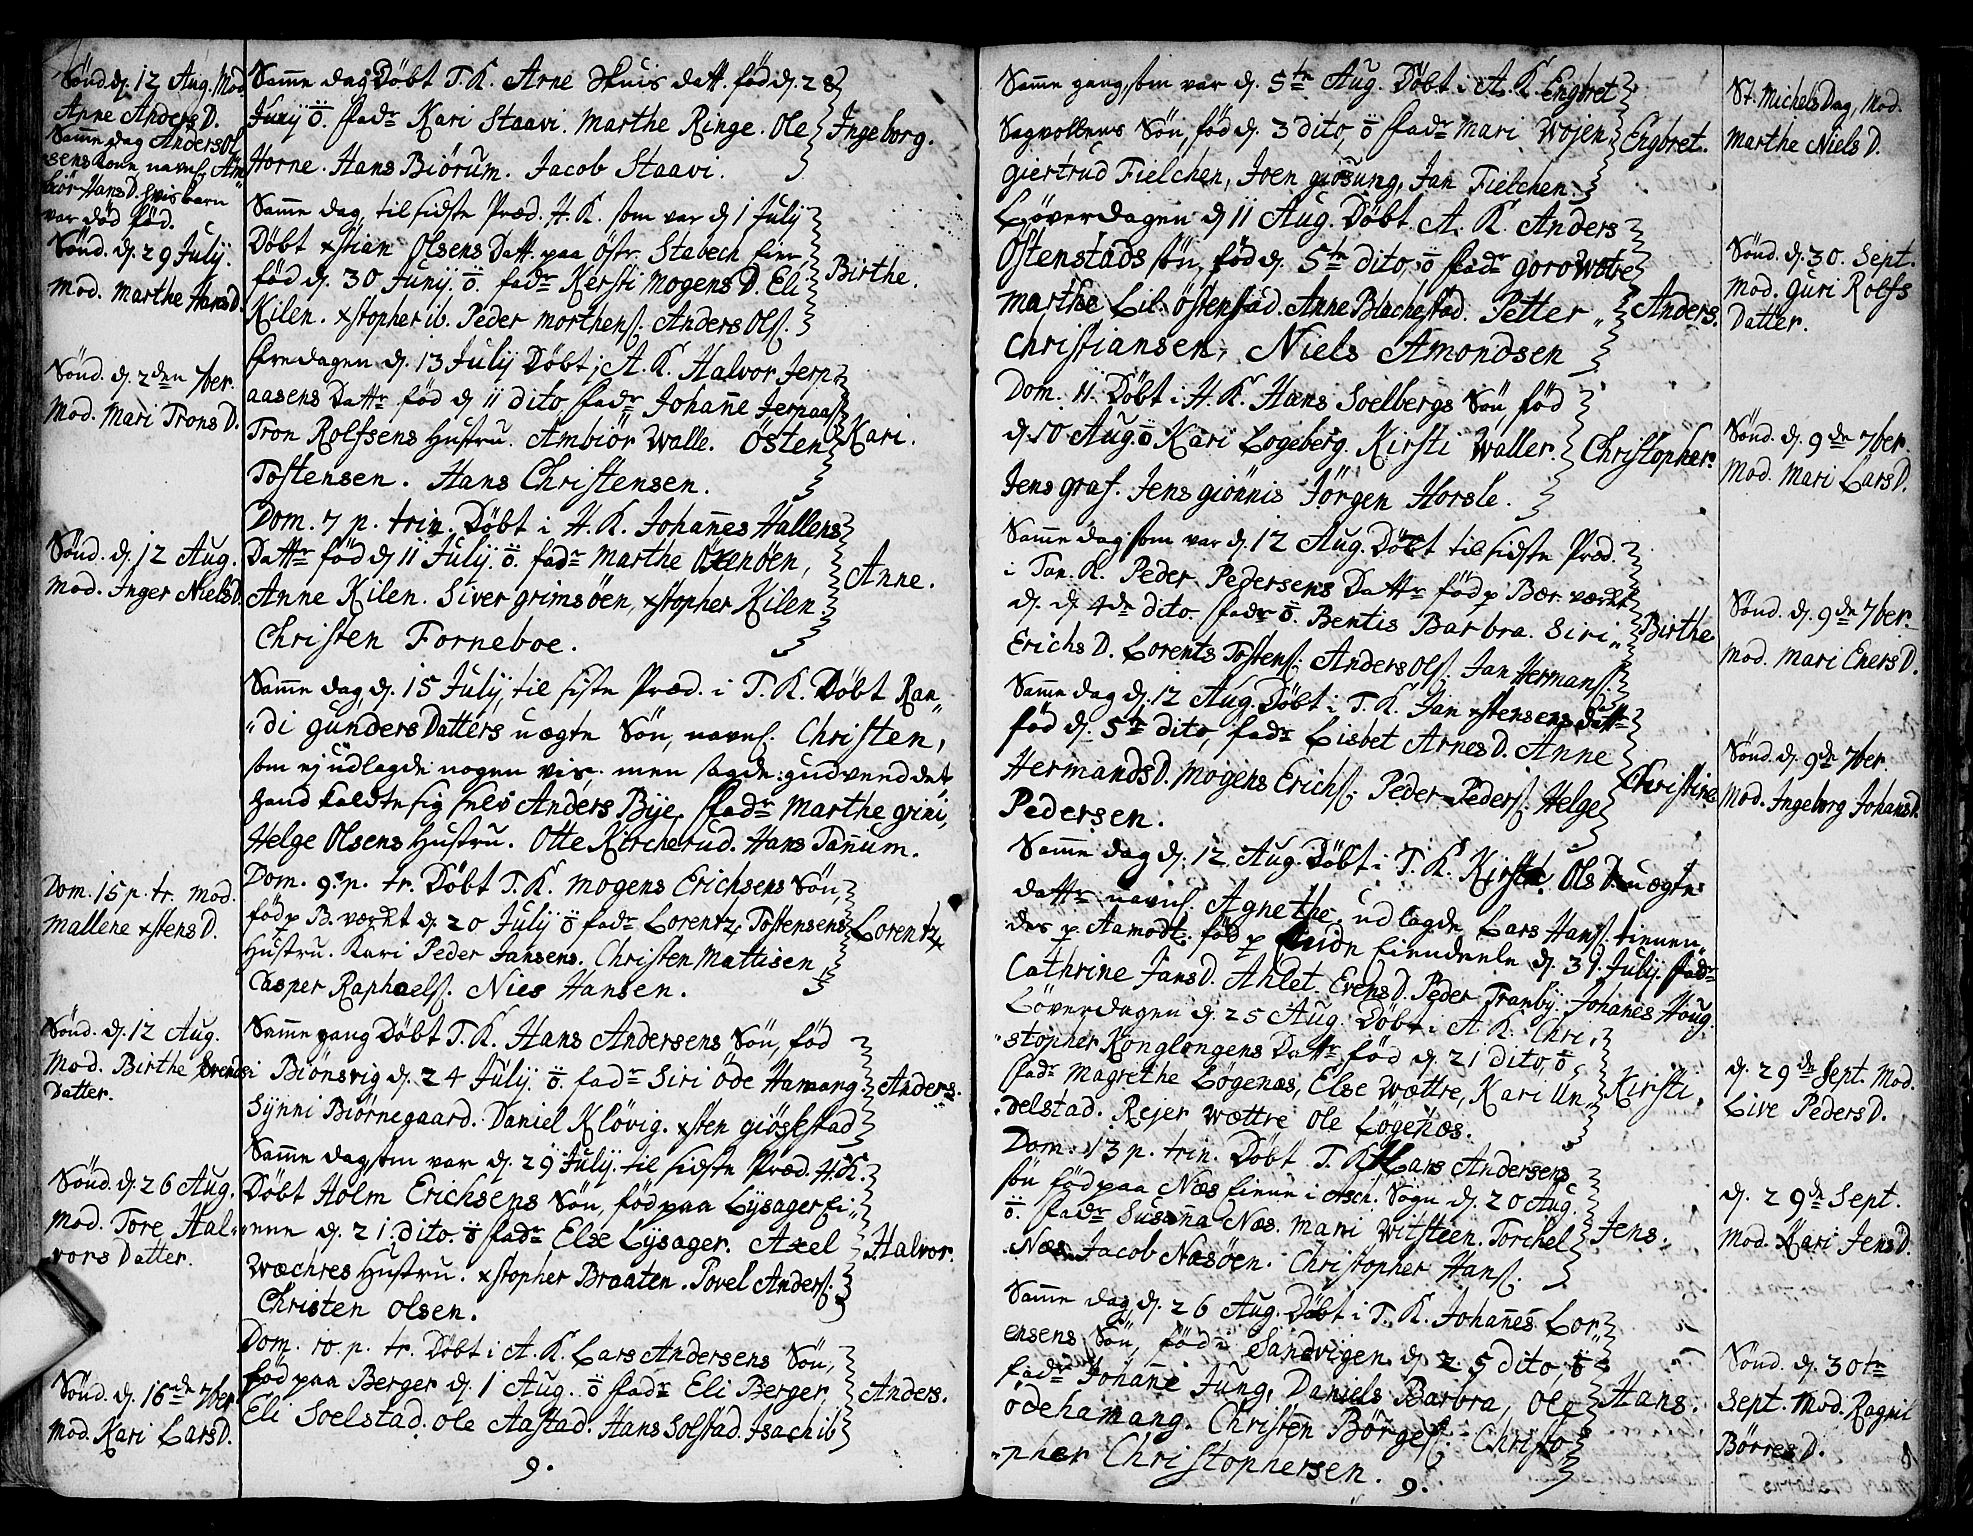 Sönd. d. 12 Aug. Mod.
Anne Anders D.
Samme dag Anders Ol
sens Kone navnl. Am
biör Hans D. hvis barn
var död föd.
Sönd. d. 29 July.
Mod. Marthe Hans D.
Sönd. d. 2den 7ber.
Mod. Mari Trons D.
Sönd. d. 12 Aug.
Mod. Inger Niels D.
Dom. 15 p. tr. Mod.
Mallene xstens D.
Sönd. d. 12 Aug.
Mod. Birthe Svends
Datter.
Sönd. d. 26 Aug.
Mod. Tore Hal-
vors Datter.
Sönd. d. 16de 7ber
Mod. Kari Lars D.
Samme dag Döbt T. K. Arne Skuis datt. föd d. 28
Junij ö. fadr Kari Staavi. Marthe Ringe. Ole
Horne. Hans Biörum. Jacob Staavi.
Ingeborg.
Samme dag, til sidste Præd. H. K. som var d 1 July
Döbt xstian Olsens Datt. paa östr. Stabech Eier,
föd d. 30 Junij. ö. fadr Kersti Mogens D. Eli
Kilen. xstopher ib. Peder Morthens. Anders Ols.
Birthe.
Fredagen d. 13 July Döbt i A. K. Halvor Jerp
aasens Dattr föd d 11 dito, fadr Johanne Jerpaas
Tron Rolfsens Hustru. Ambiör Walle. Östen
Tostensen. Hans Christensen.
Kari.
Dom. 7 p. trin. Döbt i H. K. Johannes Hallens
Dattr föd d 11 July. ö. fadr Marthe Öxenöen,
Anne Kilen. Siver grimsöen, xstopher Kilen.
Christen Forneboe.
Anne.
Samme dag, d. 15 July, til siste Præd. i T. K. Döbt Ran-
di gunders Datters uægte Sön, navnl. Christen,
som ej udlagde nogen vis. men sagde: gud vend det,
hand kaldte sig selv Anders Bije. fadr Marthe grini,
Helge Olsens Hustru. Otte Kircherud. Hans Tanum.
Dom. 9. p. tr. Döbt T. K. Mogens Erichsens Sön,
föd p B. værkt d. 20 July ö fadr Lorentz Tostensens
Hustru. Kari Peder Jansens. Christen Mattisen
Casper Raphaels. Nies Hansen.
Lorentz
Samme gang Döbt T. K. Hans Andersens Sön, föd
i Biönsvig d. 24 July. ö. fadr Siri öde Hamang.
Synni Biörnegaard. Daniel Klövig. xsten giösestad
Anders.
Samme dag som var d. 29 July. til sidste Præd. H. K.
Döbt Holm Erichsens Sön, föd paa Lysager Ei-
ene d. 21. dito. ö fadr Else Lysager. Axel
Wæchres Hustru. xstopher Braaten. Povel Anders.
Christen Olsen.
Halvor.
Dom. 10. p. tr. Döbt i A. K. Lars Andersens Sön,
föd paa Berger d. 1 Aug. ö fadr Eli Berger,
Eli Soelstad. Ole Aastad. Hans Solstad. Isach ib
Anders.
9.
Samme gang, som var d. 5te Aug. Döbt i A. K. Engbret
Sagvollens Sön, föd d. 3 dito, ö fadr Mari Wojen,
giertrud Fielchen, Joen giösung, Jan Fielchen.
Engbret.
Löverdagen d 11 Aug. Döbt A. K. Anders
Östenstads Sön, föd d. 5te dito, ö fadr goro
Marthe Lil. östenstad. Anne Blachestad. Petter
Christiansen, Niels Amondsen
Anders.
Dom. 11. Döbt i H. K. Hans Soelbergs Sön, föd
d. 10 Aug. ö Kari Logeberg. Kirsti Waller.
Jens graf. Jens giönnis Jörgen Horsle.
Christopher.
Samme dag som var d. 12 Aug. Döbt til sidste Præd.
i Tan. K. Peder Pedersens Dattr föd p Bær. værkt
d. d. 4de dito. fadr ö. Bentis Barbra. Siri
Erichs D. Lorents Tostens. Anders Ols. Jan Hermans.
Birthe
Samme dag d. 12 Aug. Döbt i T. K. Jan xstensens Dattr
föd d. 5te dito, fadr Lisbet Arnes D. Anne
Hermands D. Mogens Erichs. Peder Peders. Helge
Pedersen.
Christine
Samme dag d. 12 Aug. Döbt i T. K. Kirsten Ols D. uægte
Dattr navnl. Agnethe. udlagde Lars Hans. tienen
des p Aamodt. föd p Eiendeele d. 31. July. fadr
Cathrine Jans D. Ahlet Evens D. Peder Tranby. Johanes Houg.
Löverdagen d. 25 Aug. Döbt i A. K. Chri-
stopher Konglongens Dattr föd d. 21 dito, ö
fadr Magrethe Lögenæs, Else Wættre, Kari Un
delstad. Rejer Wættre Ole Lögenæs.
Kirsti.
Dom. 13 p. trin. Döbt T. K. Lars Andersens
Sön föd paa Næs Eiene i Asch. Sogn d. 20 Aug.
ö. fadr Susanna Næs. Mari Witsteen. Torchel
Næs. Jacob Næsöen. Christopher Hans.
Jens.
Samme dag, d. 26 Aug. Döbt i T. K. Johannes Lor-
ensens Sön, föd i Sandvigen d. 25 dito, ö
fadr Johanne Jung, Daniels Barbra, Ole
ödehamang. Christen Börges. Christo
pher Christophersen.
Hans.
9.
St. Michels Dag, Mod.
Marthe Niels D.
Sönd. d. 30. Sept.
Mod. guri Rolfs
Datter.
Sönd. d. 9de 7ber.
Mod. Mari Lars D.
Sönd. d. 9de 7ber.
Mod. Mari Eners D.
Sönd. d. 9de 7ber
Mod. Ingeborg Johans D.
d. 29de Sept. Mod.
Live Peders D.
d. 29de Sept.
Mod. Kari Jens D.
Sönd. d. 30te
Sept. Mod. Ragni
Börres D.